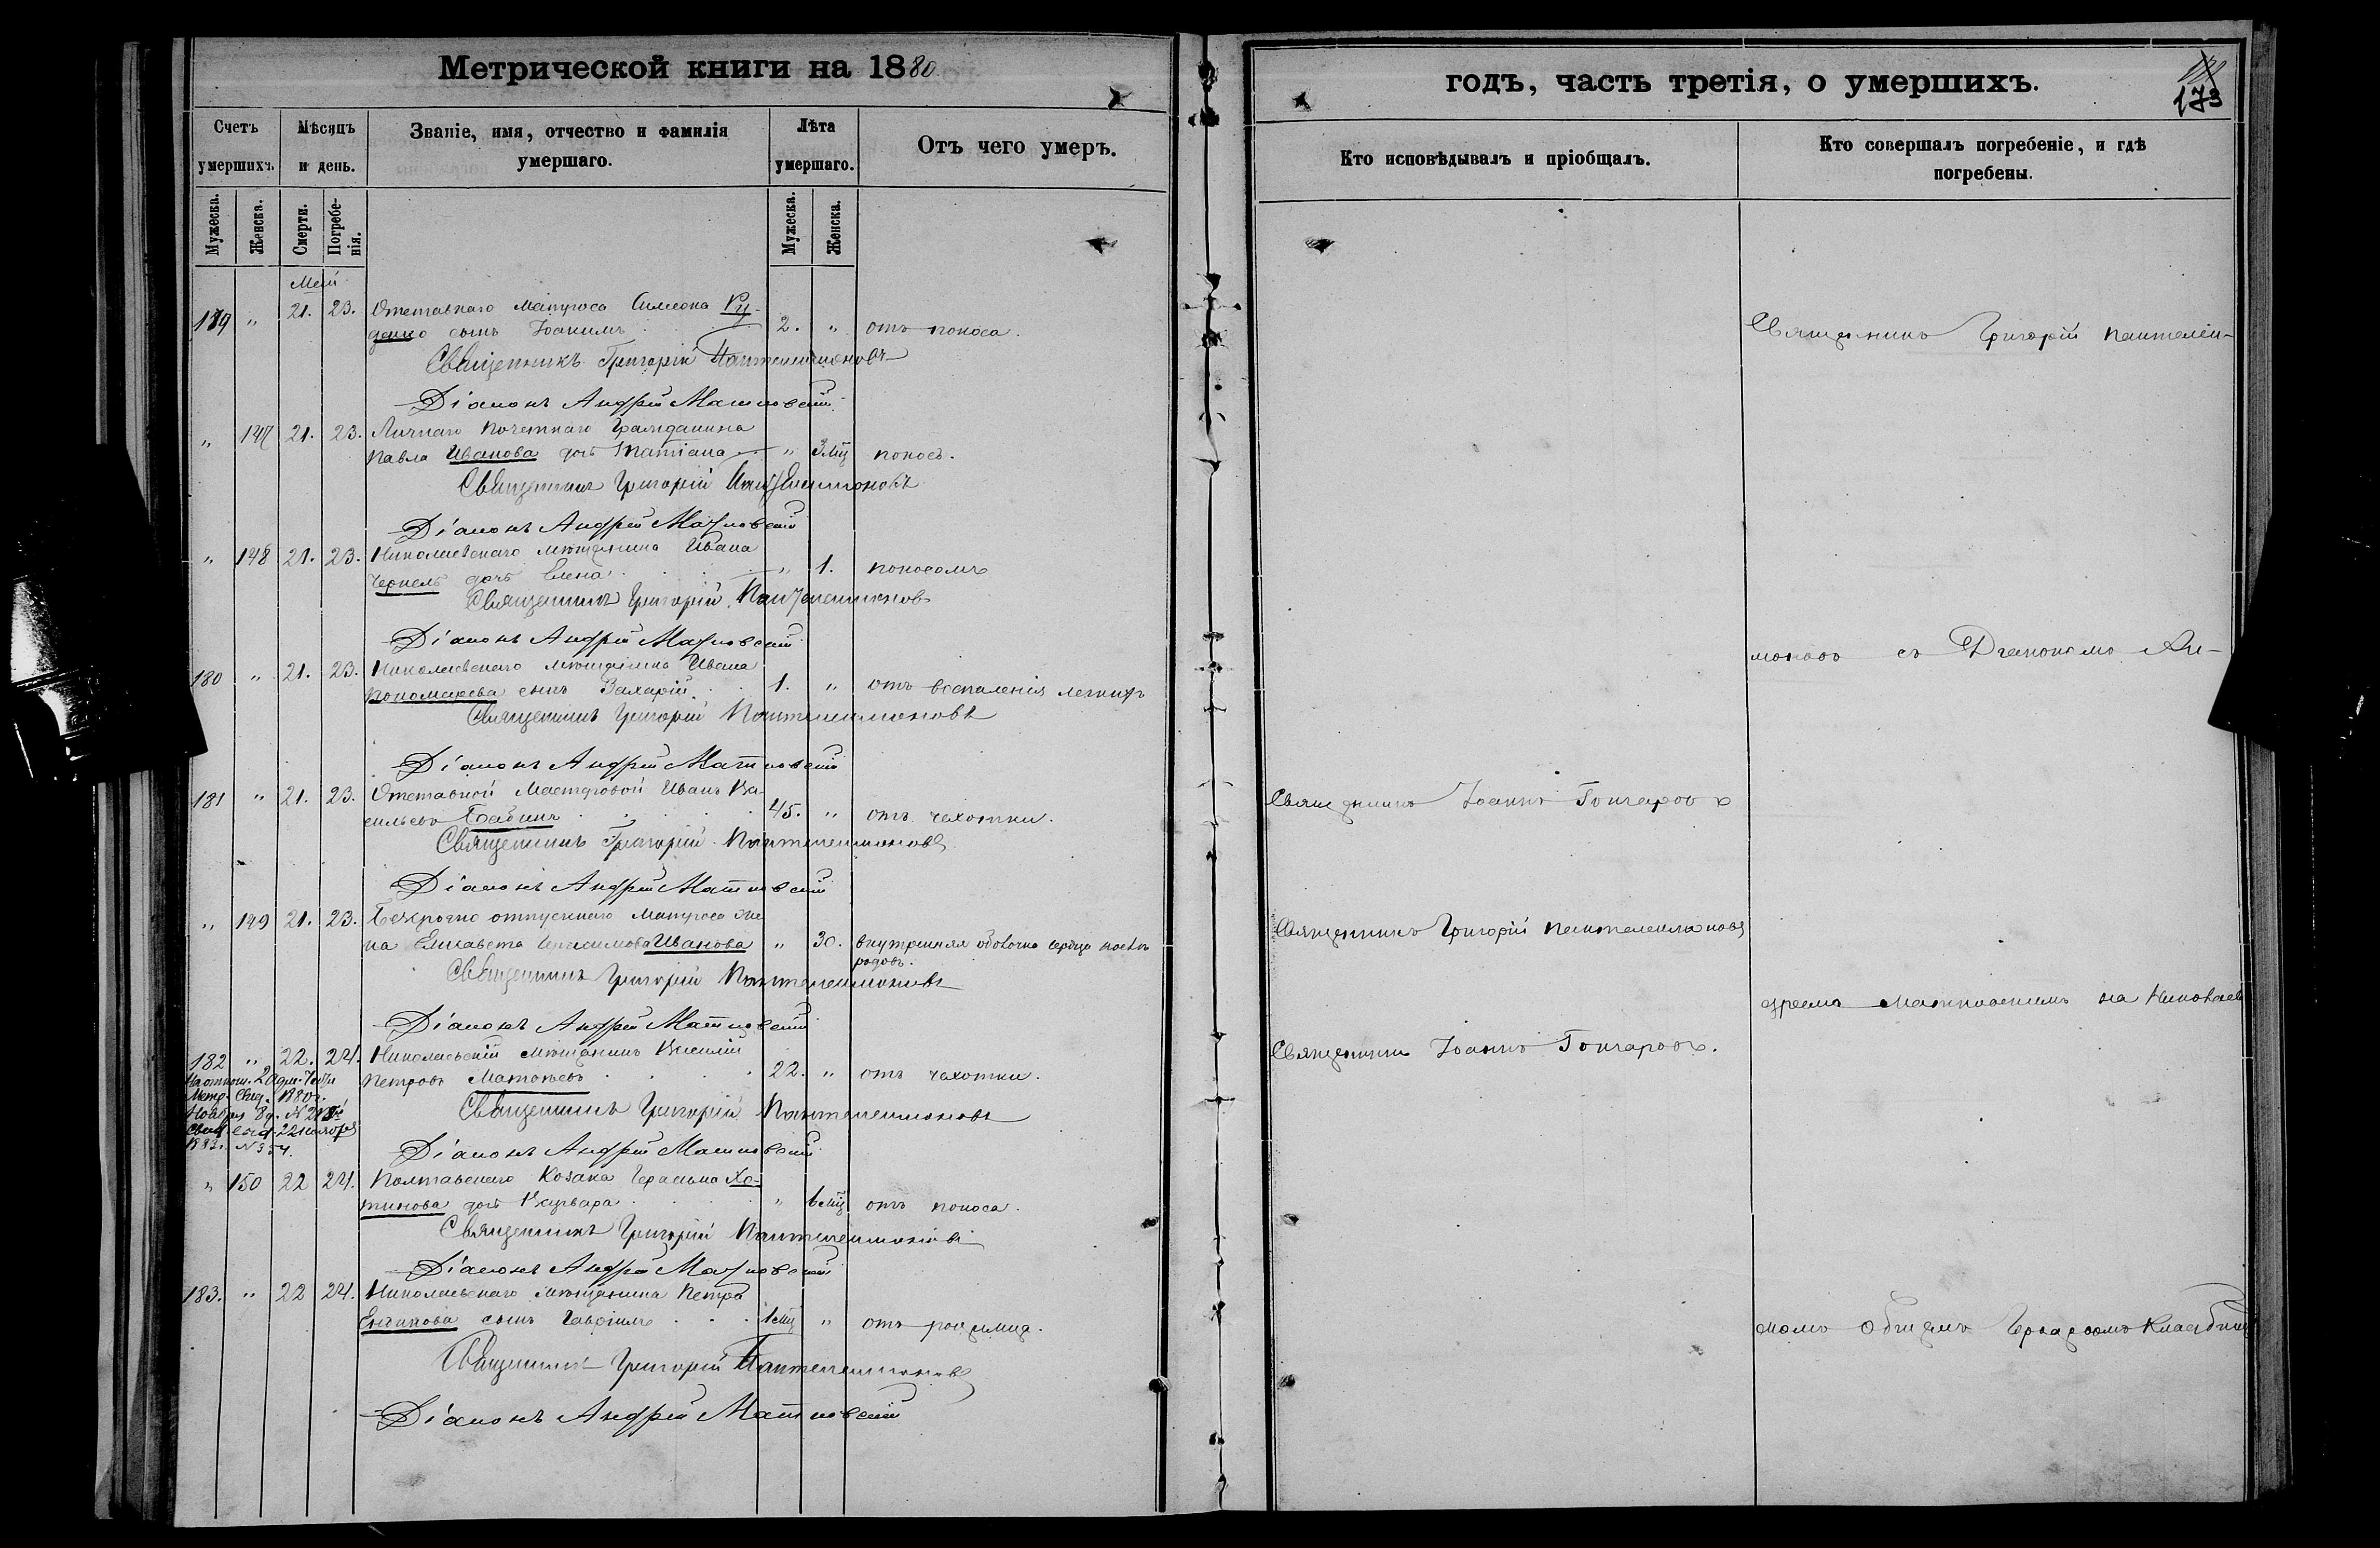 Метрической книги на 1880
Счетъ умершихъ.
Мѣсяцъ и день.
Званіе, имя, отчество и фамилія умершаго.
Лѣта умершаго.
Отъ чего умеръ.
Мужеска.
Женска.
Смерти.
Погребенія.
Мужеска.
Женска.
Май
179 " 21. 23. Отставнаго матроса Симеона Ру-
денко сынъ Іоакимъ 2. " отъ поноса.
Священникъ Григорій Пантелеимоновъ
Діаконъ Андрей Матковскій
" 147 21. 23. Личнаго почетнаго гражданина
Павла Иванова дочь Татіана " 3 мц поносъ.
Священникъ Григорій Пантелеимоновъ
Діаконъ Андрей Матковскій
" 148 21. 23. Николаевскаго мѣщанина Ивана
дочь Елена " 1. поносомъ
Священникъ Григорій Пантелеимоновъ
Діаконъ Андрей Матковскій
180 " 21. 23. Николаевскаго мѣщанина Ивана
Пономарева сынъ Захарій 1. " отъ воспаленія легкихъ
Священникъ Григорій Пантелеимоновъ
Діаконъ Андрей Матковскій
181 " 21. 23. Отставной Мастеровой Иванъ Ва-
сильевъ Бабинъ 45. " отъ чахотки.
Священникъ Григорій Пантелеимоновъ
Діаконъ Андрей Матковскій
" 149 21. 23. Безсрочно отпускнаго Матроса же-
на Елисавета Герасимова Иванова " 30. внутренняя оболочка сердца послѣ
родовъ.
Священникъ Григорій Пантелеимоновъ
Діаконъ Андрей Матковскій
182 " 22. 24. Николаевскій мѣщанинъ Василій
Петровъ 22. " отъ чахотки.
Метр. Свид. 1880 г.
Ноября 8 д. №
22 ноября
Священникъ Григорій Пантелеимоновъ
Діаконъ Андрей Матковскій
" 150 22 24. Полтавскаго Козака Герасима Хо-
тинова дочь Варвара " мц отъ поноса.
Священникъ Григорій Пантелеимоновъ
Діаконъ Андрей Матковскій
183. " 22 24. Николаевскаго мѣщанина Петра
сынъ Гавріилъ 1 мц " отъ
Священникъ Григорій Пантелеимоновъ
Діаконъ Андрей Матковскій
годъ, часть третія, о умершихъ.
173
Кто исповѣдывалъ и пріобщалъ.
Кто совершалъ погребеніе, и гдѣ погребены.
Священникъ Григорій Пантелеи-
моновъ съ Діакономъ Ан-
Священникъ Іоаннъ Гончаровъ
Священникъ Григорій Пантелеимоновъ
дреемъ Матковскимъ на Николаев
Священникъ Іоаннъ Гончаровъ.
скомъ общемъ городскомъ кладбищ